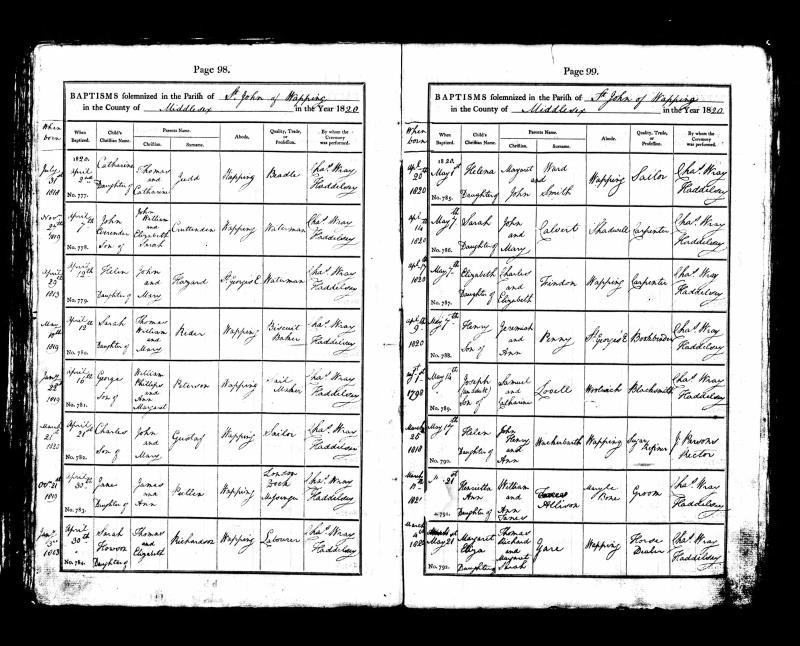 Page 98.
BAPTISMS solemnized in the Parish of St John of Wapping
in the County of Middlesex in the Year 1820
When born
When Baptized.
Child's Christian Name.
Parents Name.
Christian.
Surname.
Abode.
Quality, Trade, or Profession.
By whom the Ceremony was performed.
July 31st 1818
1820. April 2nd No. 777.
Catharine Daughter of
Thomas and Catharine
Judd
Wapping
Beadle
Chas. Wray Haddelsey
Novr 1819
April 7th No. 778.
John Son of
John William and Elizabeth Sarah
Cruttenden
Wapping
Waterman
Chas. Wray Haddelsey
April 29 1813
April 9th No. 779.
Helen Daughter of
John and Mary
Hazard
St Georges E
Waterman
Chas. Wray Haddelsey
May 1819
April 12th No. 780.
Sarah Daughter of
Thomas William and Mary
Reder
Wapping
Biscuit Baker
Chas. Wray Haddelsey
Jany 22d 1819
April 16th No. 781.
George Son of
William Phillips and Ann Margaret
Peterson
Wapping
Sail Maker
Chas. Wray Haddelsey
March 21st 1820
April 21st No. 782.
Charles Son of
John and Mary
Gustaf
Wapping
Sailor
Chas. Wray Haddelsey
Octr 21st 1819
April 30th No. 783.
Jane Daughter of
James and Ann
Pullen
Wapping
London Dock Messenger
Chas. Wray Haddelsey
Jany 1803
April 30th No. 784.
Sarah Howson Daughter of
Thomas and Elizabeth
Richardson
Wapping
Labourer
Chas. Wray Haddelsey
Page 99.
BAPTISMS solemnized in the Parish of St John of Wapping
in the County of Middlesex in the Year 1820
When born
When Baptized.
Child's Christian Name.
Parents Name.
Christian.
Surname.
Abode.
Quality, Trade, or Profession.
By whom the Ceremony was performed.
Apl 20 1820
1820. May No. 785.
Helena Daughter of
Margaret and John
Ward Smith
Wapping
Sailor
Chas. Wray Haddelsey
Apl 14 1820
May 7th No. 786.
Sarah Daughter of
John and Mary
Calvert
Shadwell
Carpenter
Chas. Wray Haddelsey
Apl 17 1820
May 7th No. 787.
Elizabeth Daughter of
Charles and Elizabeth
Frindon
Wapping
Carpenter
Chas. Wray Haddelsey
Apl 9 1820
May 7th No. 788.
Henry Son of
Jeremiah and Ann
Penny
St Georges E
Bookbinder
Chas. Wray Haddelsey
1798
May 14th No. 789.
Joseph (an adult) Son of
Samuel and Catharine
Lovell
Woolwich
Blacksmith
Chas. Wray Haddelsey
March 26 1818
May 17th No. 790.
Helen Daughter of
John Henry and Ann
Wackerbarth
Wapping
Sugar Refiner
J. Parsons Rector
March
" 21st No. 791.
Henrietta Ann Daughter of
William and Ann Janes
Allison
Maryle Bone
Groom
Chas. Wray Haddelsey
March 4th
May 21 No. 792.
Margaret Eliza Daughter of
Thomas Richard and Margaret Sarah
Gare
Wapping
Horse Dealer
Chas. Wray Haddelsey